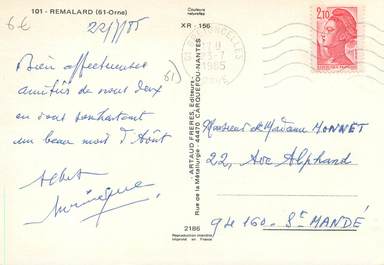 101 - REMALARD (61-Orne)
Couleurs
naturelles
XR - 156
6€
22/7/85
61
2,10
1985
Bien affectueuses
amitiés de nous deux
en vous souhaitant
un beau mois d'Août
ARTAUD FRERES Editeurs -
Rue de la Métallurgie - 44470 CARQUEFOU-NANTES
Monsieur et Madame MONNET
22, Ave Alphand
94160 - St MANDÉ
2186
Reproduction interdite
Imprimé en France